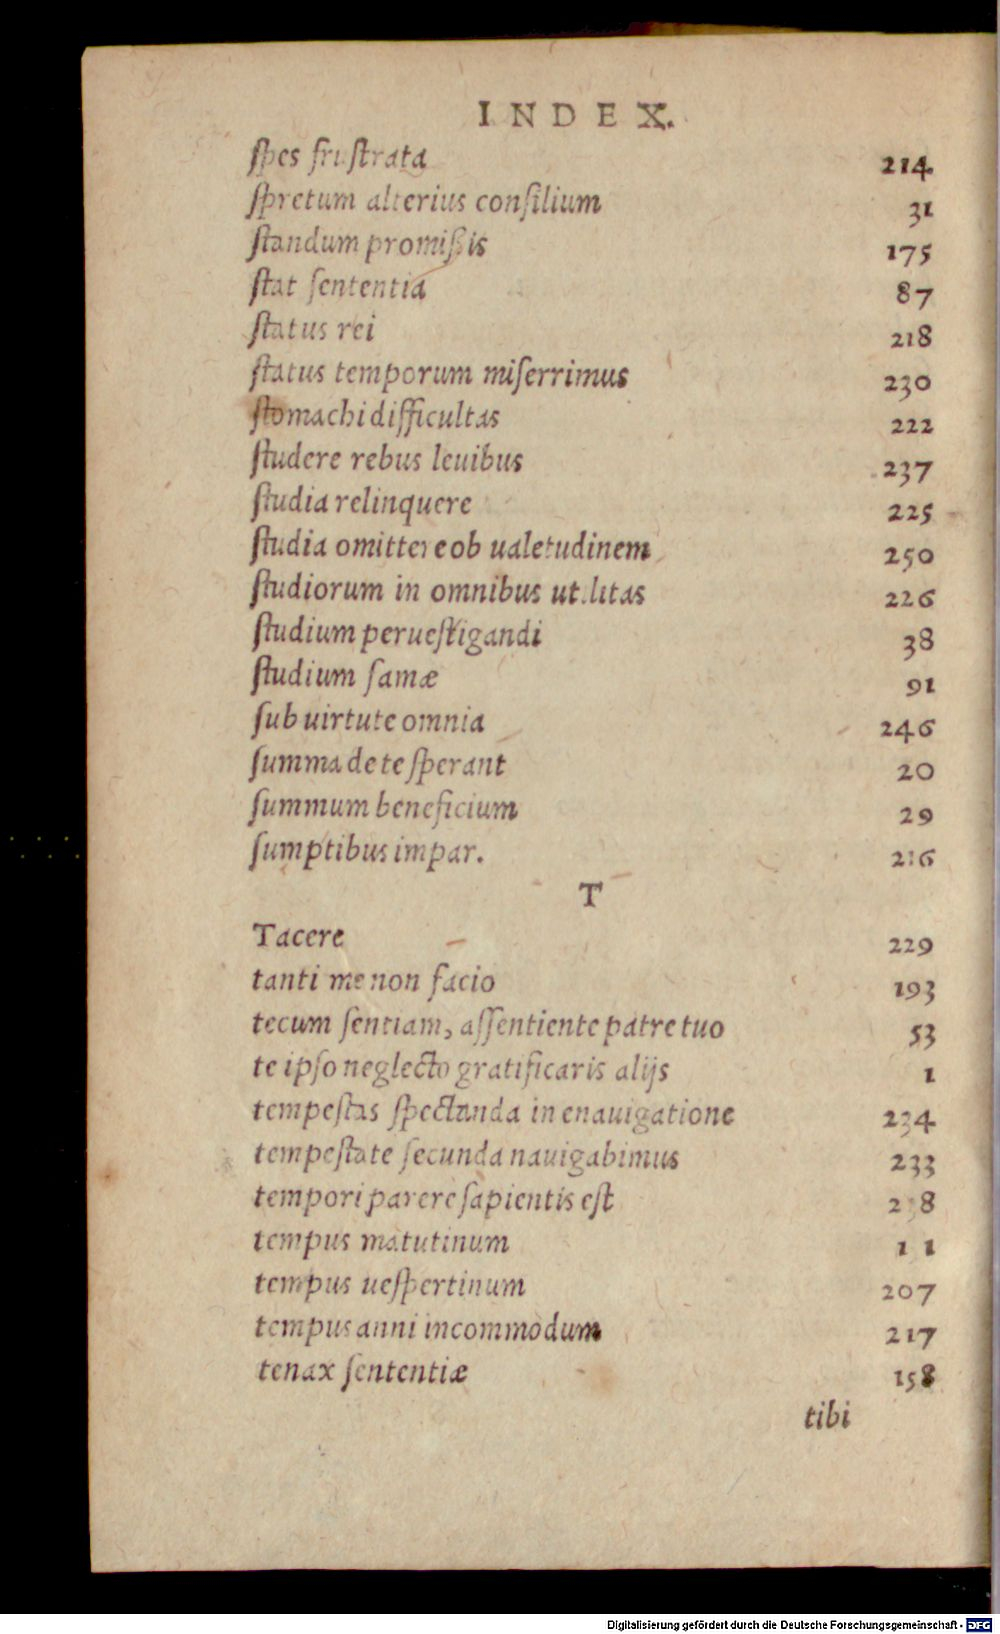 INDEX.
ſpes fruſtrata 214
ſpretum alterius conſilium 31
ſtandum promiſsis 175
ſtat ſententia 87
ſtatus rei 218
ſtatus temporum miſerrimus 230
ſtomachi difficultas 222
ſtudere rebus leuibus 237
ſtudia relinquere 225
ſtudia omittere ob ualetudinem 250
ſtudiorum in omnibus utilitas 226
ſtudium perueſtigandi 38
ſtudium famæ 91
ſub uirtute omnia 246
ſumma de te ſperant 20
ſummum beneficium 29
ſumptibus impar. 216
T
Tacere 229
tanti me non facio 193
tecum ſentiam, aſſentiente patre tuo 53
te ipſo neglecto gratificaris alijs 1
tempeſtas ſpectanda in enauigatione 234
tempeſtate ſecunda nauigabimus 233
tempori parere ſapientis eſt
tempus matutinum
tempus ueſpertinum 207
tempus anni incommodum 217
tenax ſententiæ 158
tibi
Digitalisierung gefördert durch die Deutsche Forschungsgemeinschaft - DFG